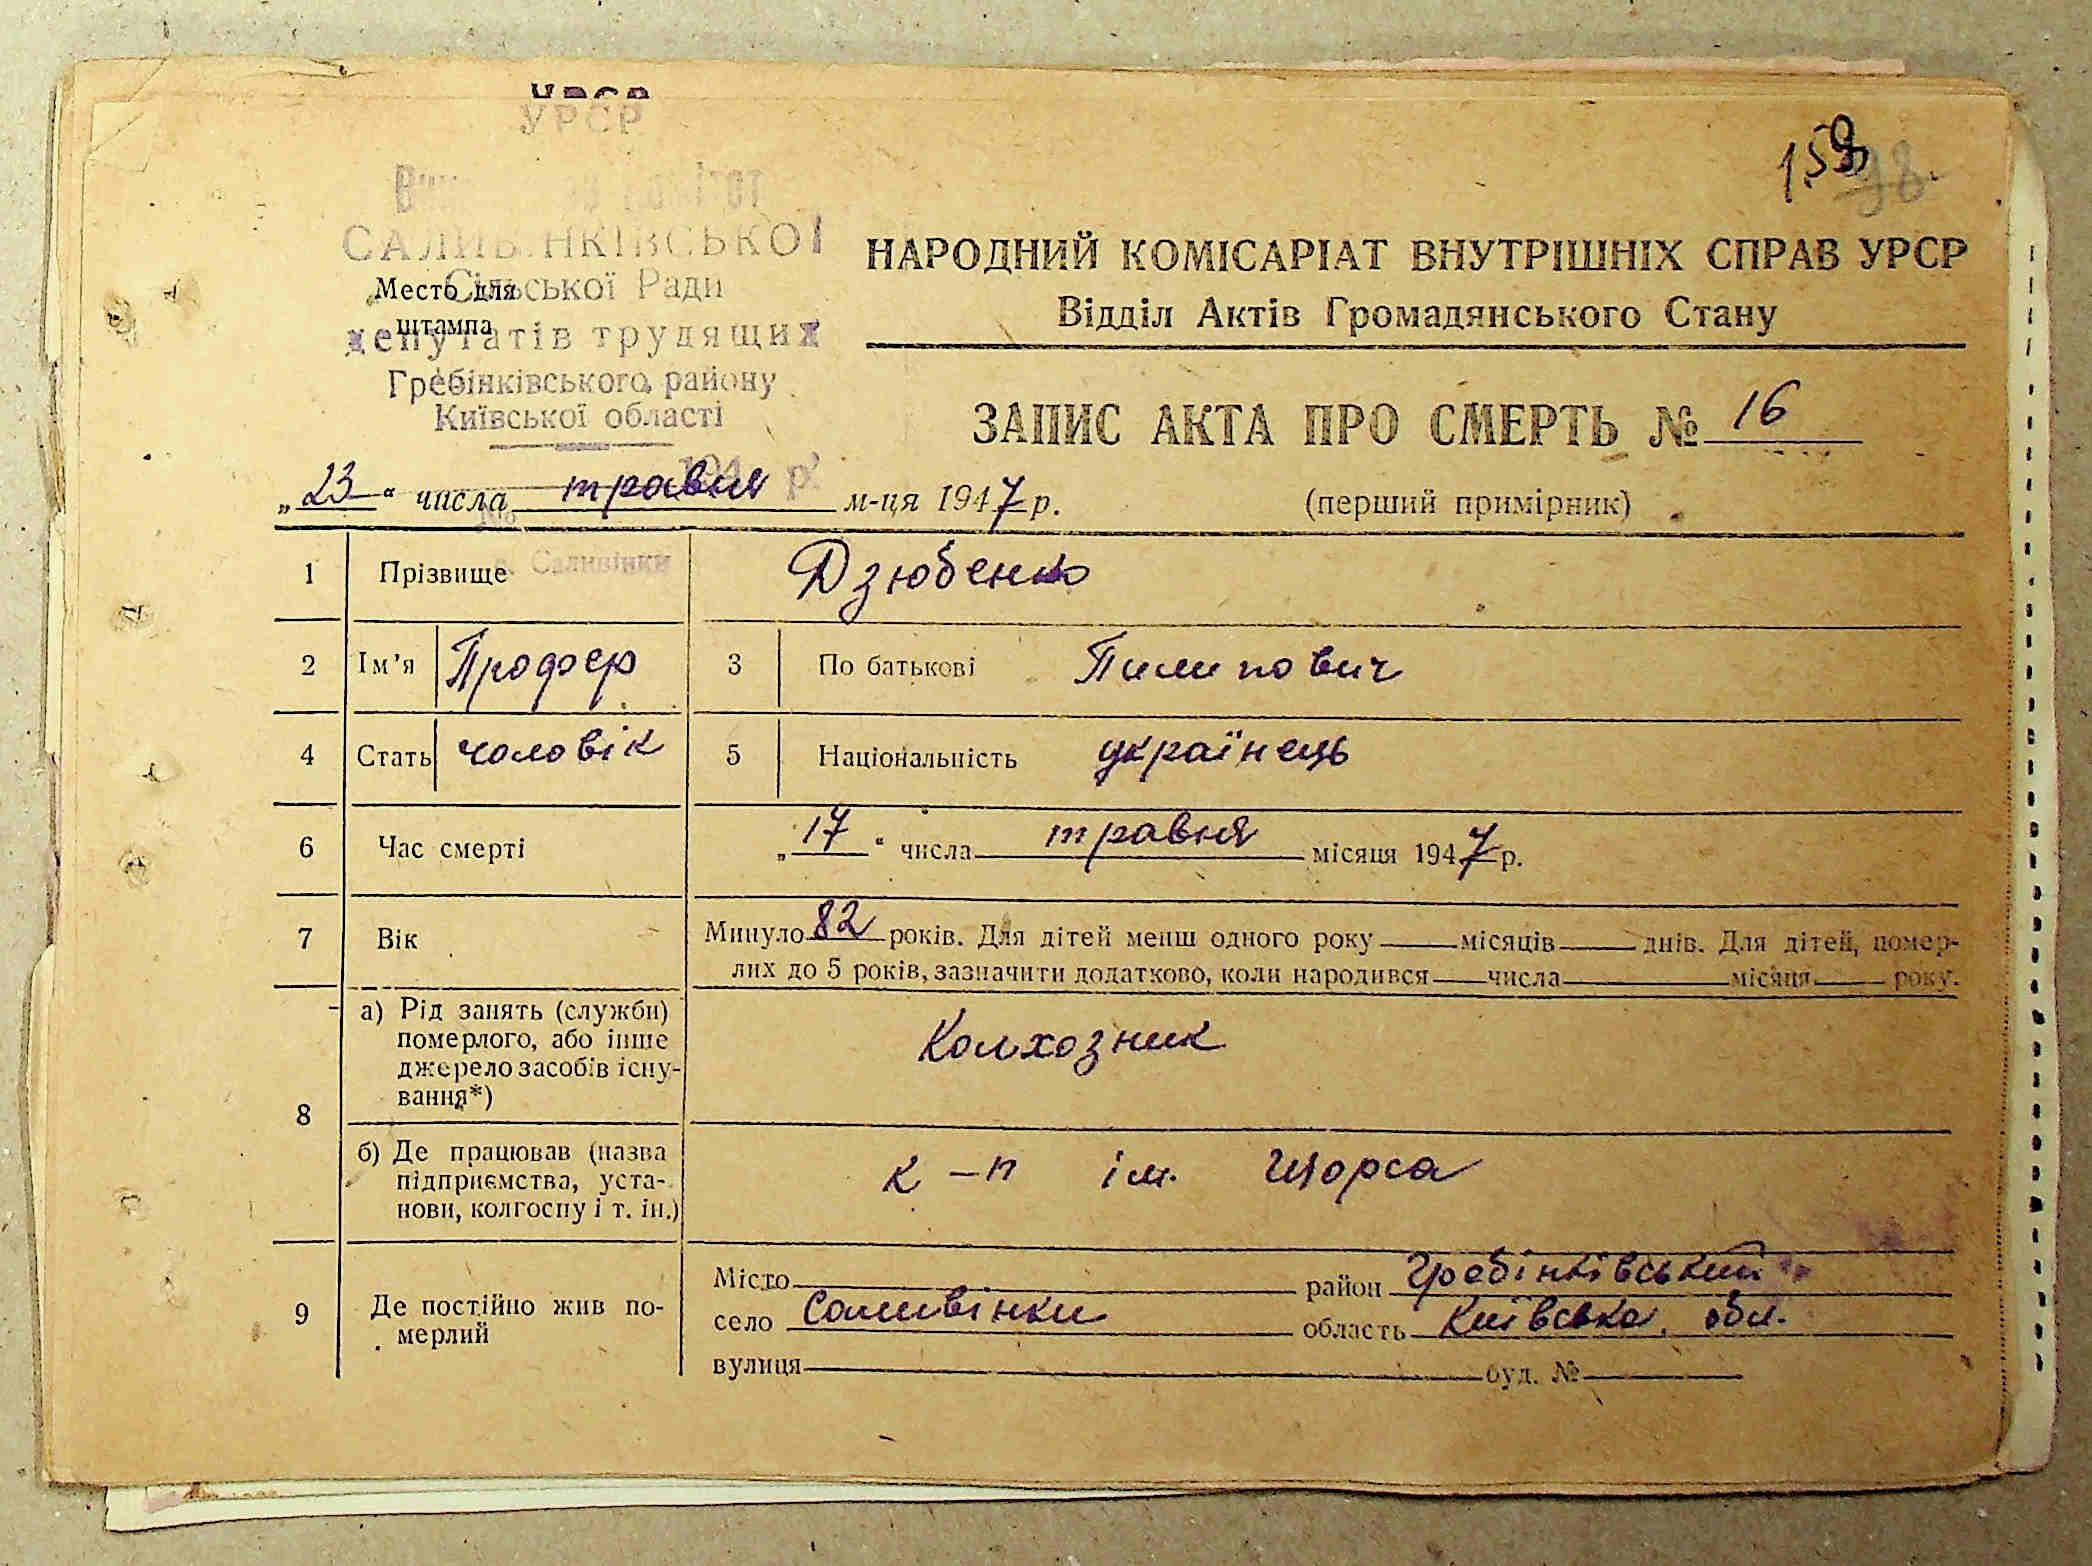 УРСР
158 98.
САЛИВ.НКІВСЬКОЇ
Сільської Ради
депутатів трудящих
Гребінківського району
Київської області
Место для
штампа
НАРОДНИЙ КОМІСАРІАТ ВНУТРІШНІХ СПРАВ УРСР
Відділ Актів Громадянського Стану
ЗАПИС АКТА ПРО СМЕРТЬ № 16
„23“ числа травня м-ця 1947 р.
(перший примірник)
с. Саливінки
1 Прізвище Дзюбенко
2 Ім’я Профер 3 По батькові Пилипович
4 Стать чоловік 5 Національність українець
6 Час смерті „17“ числа травня місяця 1947 р.
7 Вік Минуло 82 років. Для дітей менш одного року місяців днів. Для дітей, помер-
лих до 5 років, зазначити додатково, коли народився числа місяця року.
8 а) Рід занять (служби)
померлого, або інше
джерело засобів існу-
вання*)
Колхозник
б) Де працював (назва
підприємства, уста-
нови, колгоспу і т. ін.)
к-п ім. Щорса
9 Де постійно жив по-
мерлий
Місто район Гребінківський
село Саливінки область Київська обл.
вулиця буд. №